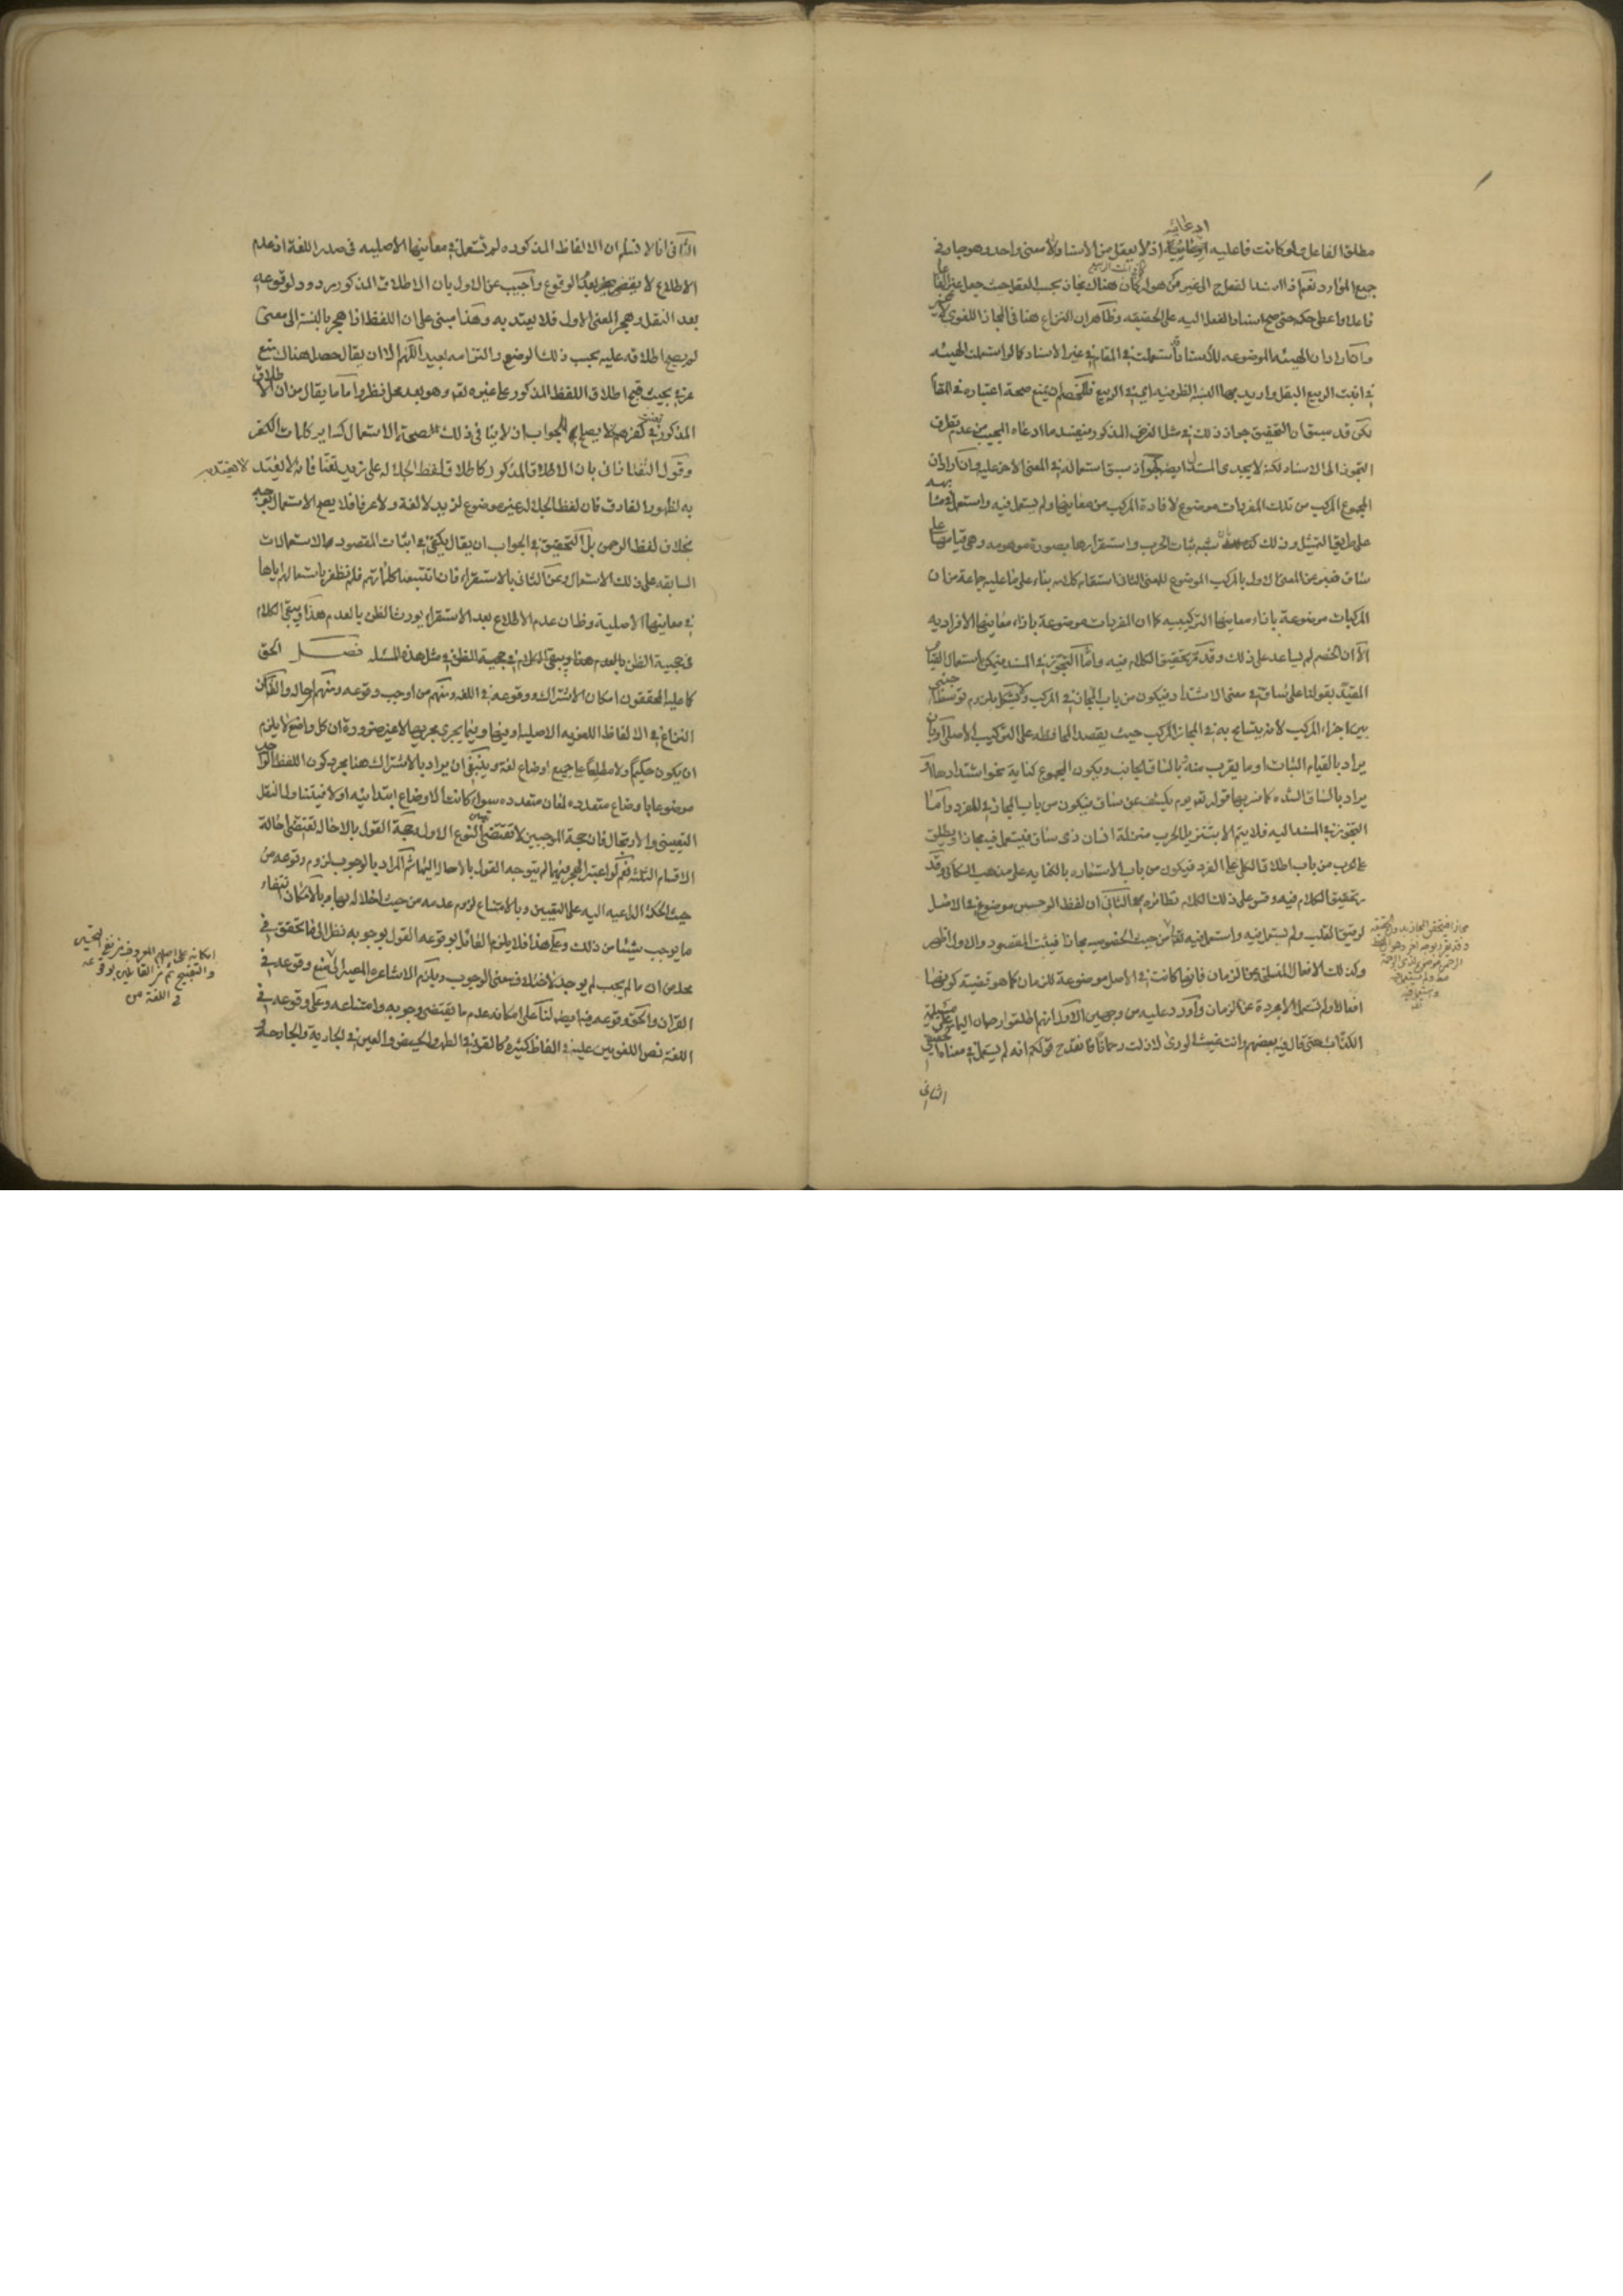 او عطائيه
مطلق الفاعل ولو كانت فاعليه اذ لا يعقل من الاسناد الا معنى واحد وهو جار في
جميع الموارد نعم اذا اسند الفعل الى غير من هو له كان هناك مجاز بحسب العقل حيث جعل غير الفاعل
فاعلا واعطى حكمه حتى صح اسناد الفعل اليه على الحقيقه وظاهر ان النزاع هنا في المجاز اللغوي
وان اراد ان الهيئه الموضوعه للاسناد استعملت في المقام في غير الاسناد كما لو استعملت الهيئه
في انبت الربيع البقل واريد بها النسبه الظرفيه اي في الربيع فللخصم ان يمنع صحة اعتباره في المقام
لكن قد سبق ان التحقيق جواز ذلك في مثل الفرض المذكور فيفسد ما ادعاه المجيب من عدم تطرق
التجوز الى الاسناد لكنه لا يجدي المستدل ايضا لجواز سبق استعماله في المعنى الاخر عليه وان اراد ان
المجموع المركب من تلك المفردات موضوع لافادة المركب من معانيها ولم يستعمل فيه واستعمل في مشابهه
على طريق التمثيل وذلك شبه ثبات الحرب واستقرارها بصورة موهومه وهي قيامها على
ساق فعبر عن المعنى الاول بالمركب الموضوع للمعنى الثاني استقام كلامه بناء على ما عليه جماعة من ان
المركبات موضوعة بازاء معانيها التركيبيه كما ان المفردات موضوعة بازاء معانيها الافراديه
الا ان الخصم لم يساعد على ذلك وقد مر تحقيق الكلام فيه واما التجوز في المسند فيمكن باستعمال القيام
المقيد بقولنا على ساق في معنى الاشتداد فيكون من باب المجاز في المركب ولا يشكل بلزوم توسط اجنبي
بين اجزاء المركب لانه يتسامح به في المجاز المركب حيث يقصد المحافظه على التركيب الاصلي او بان
يراد بالقيام الثبات او ما يقرب منه بالساق الجانب ويكون المجموع كناية نحو اشتدادها او
يراد بالساق الشده كما فسر بها قوله تعم يوم يكشف عن ساق فيكون من باب المجاز في المفرد واما
التجوز في المسند اليه فلا يتم الا بتنزيل الحرب منزلة انسان ذي ساق فيستعمل فيه مجازا او يطلق
على الحرب من باب اطلاق الكلي على الفرد فيكون من باب الاستعاره بالكنايه على مذهب السكاكي وقد
مر تحقيق الكلام فيه وقس على ذلك الكلام في نظائره الثاني ان لفظ الرحمن موضوع في الاصل
لرقيق القلب ولم يستعمل فيه واستعمل فيه تعالى من حيث الخصوصيه مجازا فيثبت المقصود والاول اظهر
وكذلك الافعال المنسلخة عن الزمان فانها كانت في الاصل موضوعة للزمان كما هو قضية كونها
افعالا ولم تستعمل الا مجردة عن الزمان واورد عليه من وجهين الاول انهم اطلقوا رحمان اليمامة على مسيلمة
الكذاب حتى قال فيه بعضهم وانت غيث الورى لا زلت رحمانا فانقدح قولكم انه لم يستعمل في معناه الحقيقي
الثاني
الثاني انا لا نسلم ان الالفاظ المذكوره لم تستعمل في معانيها الاصليه في صدر اللغة اذ عدم
الاطلاع لا يقضي بعدم الوقوع واجيب عن الاول بان الاطلاق المذكور مردود لوقوعه
بعد النقل وهجر المعنى الاول فلا يعتد به وهذا مبني على ان اللفظ اذا هجر بالنسبة الى معنى
لم يصح اطلاقه عليه بحسب ذلك الوضع والتزامه بعيد اللهم الا ان يقال حصل هناك منع
عرفي بحيث قبح اطلاق اللفظ المذكور على غيره تعم وهو بعد محل نظر واما ما يقال من ان الاطلاق
المذكور تعنت في كفرهم لا يصلح للجواب اذ لا ينافي ذلك صحة الاستعمال كساير كلمات الكفر
وقول التفتازاني بان الاطلاق المذكور كاطلاق لفظ الجلاله على زيد تعنتا فانه لا يعتد لا يعتد به
به لظهور الفارق فان لفظ الجلاله غير موضوع لزيد لا لغة ولا عرفا فلا يصح الاستعمال بوجه
بخلاف لفظ الرحمن بل التحقيق في الجواب ان يقال يكفي في اثبات المقصود الاستعمالات
السابقه على ذلك الاستعمال وعن الثاني بالاستقراء فانا تتبعنا كلماتهم فلم نظفر باستعمالهم اياها
في معانيها الاصلية وظان عدم الاطلاع بعد الاستقراء يورث الظن بالعدم هذا ويبقى الكلام
في حجية الظن بالعدم هذا ويبقى الكلام في حجية الظن في مثل هذه المسئله فصل الحق
كما عليه المحققون امكان الاشتراك ووقوعه في اللغه ومنهم من اوجب وقوعه ومنهم احاله والظاهر ان
النزاع في الالفاظ اللغويه الاصليه او فيها وفيما يجري مجريها لا غير ضرورة ان كل واضع لا يلزم
ان يكون حكيما ولا مطلعا على جميع اوضاع لغة وينبغي ان يراد بالاشتراك هنا مجرد كون اللفظ الواحد
موضوعا باوضاع متعدده لمعان متعدده سواء كانت الاوضاع ابتدائيه او لا فيتناول النقل
التعييني والارتجال فان حجة الموجبين لا تقتضي تعيين النوع الاول وحجة القول بالاحاله تقتضي احالة
الاقسام الثلثه نعم لو اعتبر الهجر فيهما لم يتوجه القول بالاحاله اليهما ثم المراد بالوجوب لزوم وقوعه من
حيث الحكمة الداعيه اليه على التعيين وبالامتناع لزوم عدمه من حيث اخلاله بها وبالامكان انتفاء
ما يوجب شيئا من ذلك وعلى هذا فلا يلزم القائل بوقوعه القول بوجوبه نظرا الى ما تحقق في
محله من ان ما لم يجب لم يوجد لاختلاف معنى الوجوب ويلزم الاشاعره المصير الى منع وقوعه في
القران والحق وقوعه فيه ايضا لنا على امكانه عدم ما يقتضي وجوبه وامتناعه وعلى وقوعه في
اللغة نص اللغويين عليه في الفاظ كثيرة كالقرء في الطهر والحيض والعين في الجارية والجارحة
امكانه على اصلهم المعروف من نفي التحسين
والتقبيح ثم من القائلين بوقوعه
في اللغة من